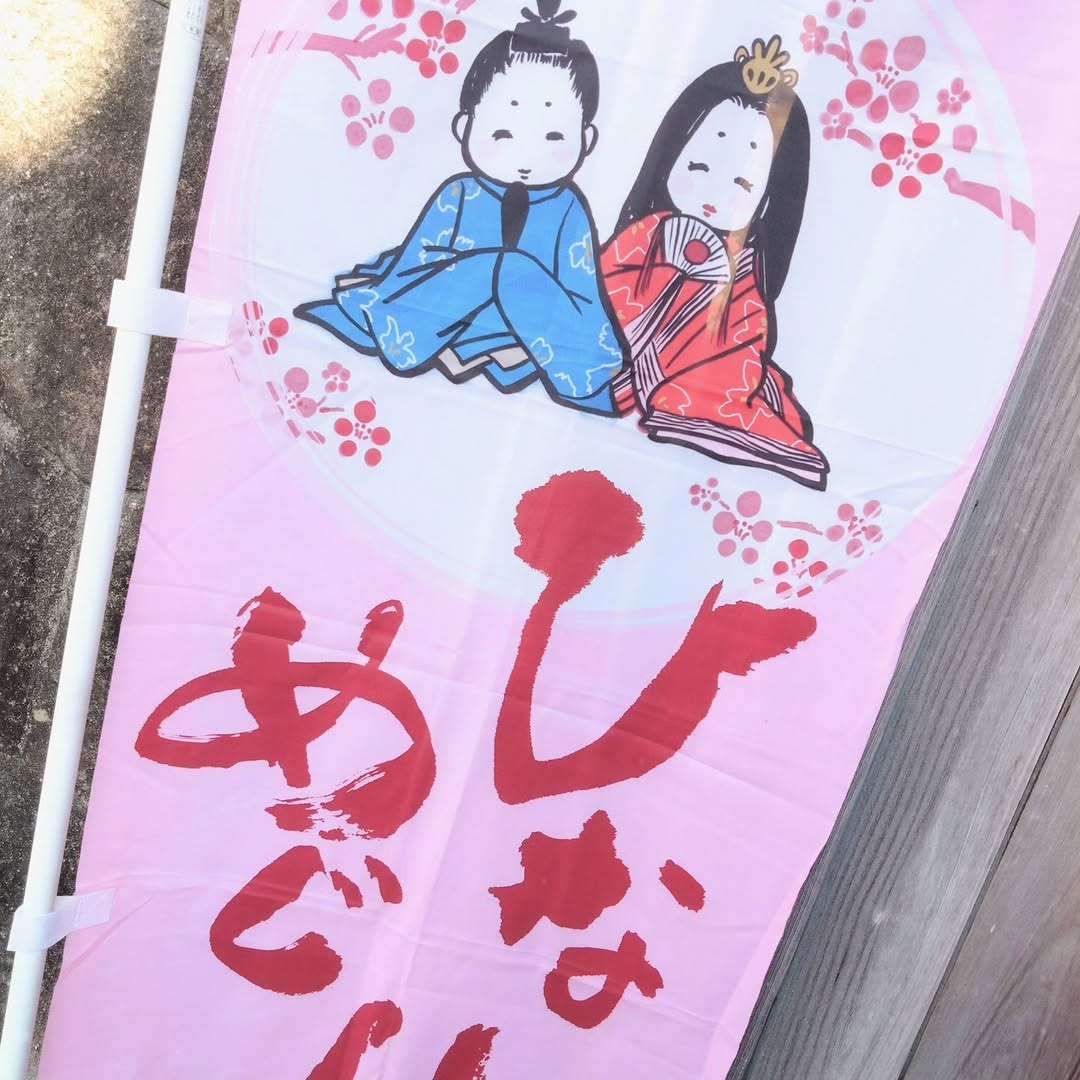 ひな
めぐり